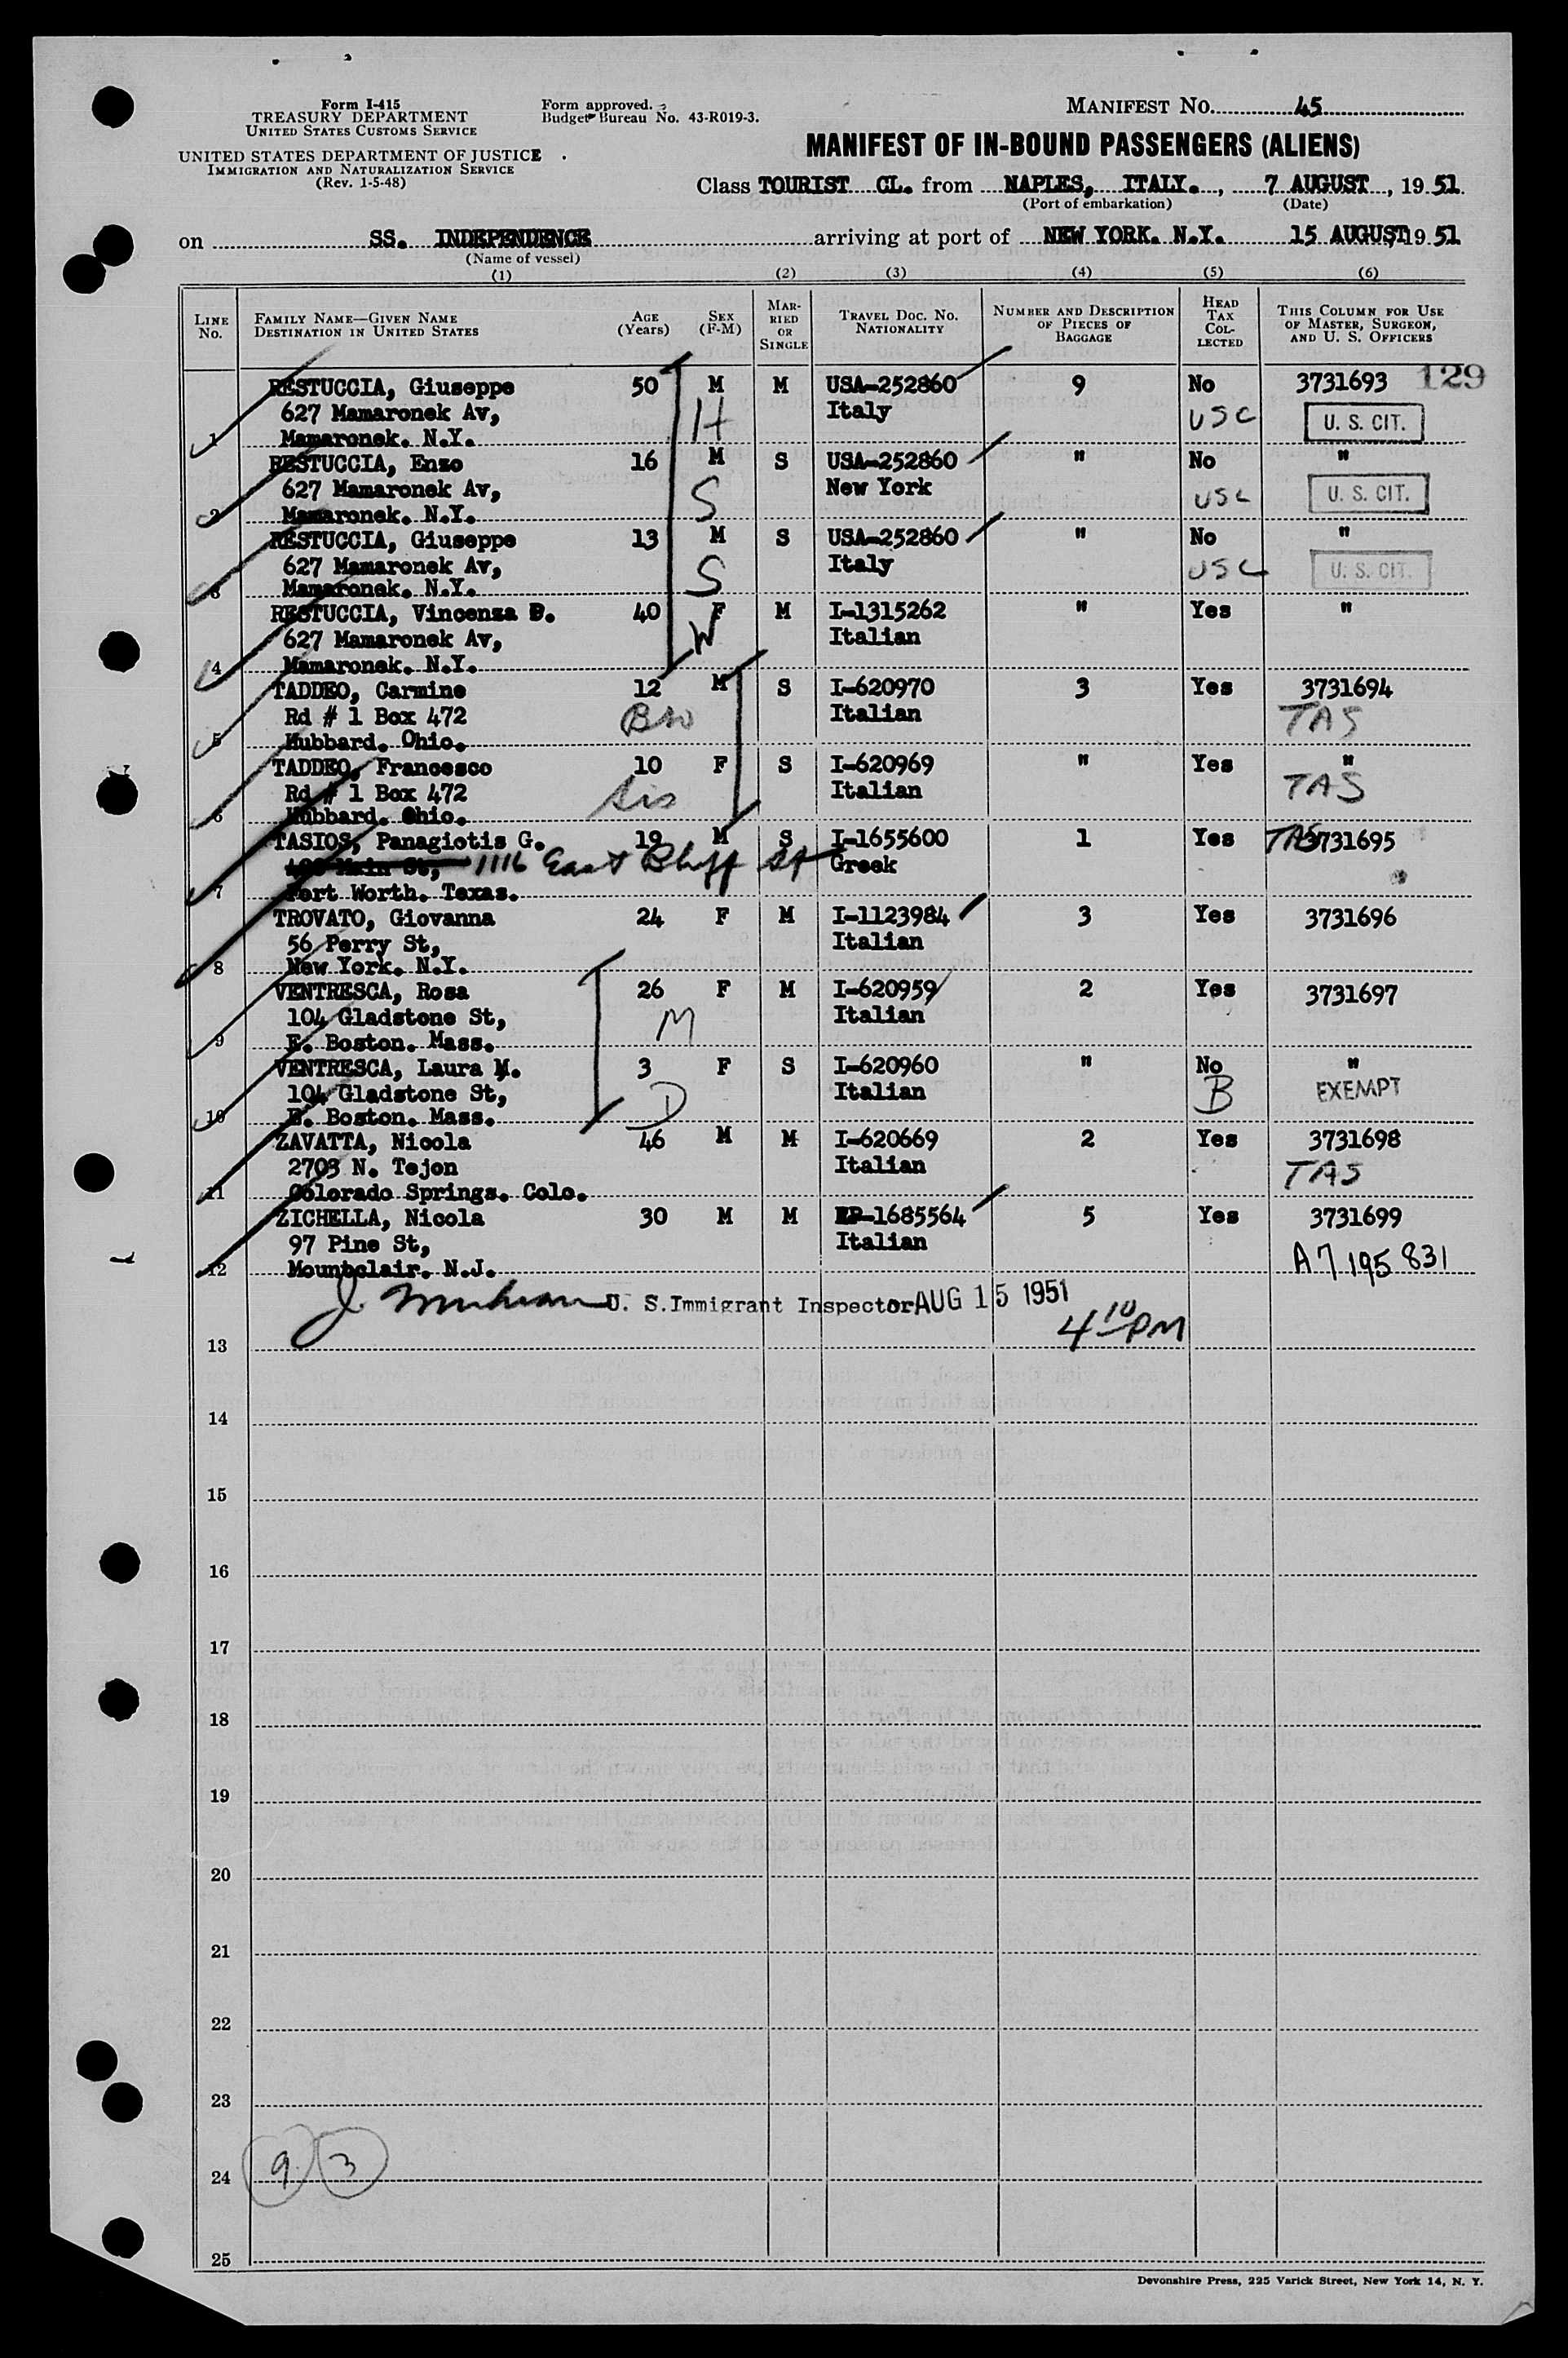 Form I-415
TREASURY DEPARTMENT
UNITED STATES CUSTOMS SERVICE
UNITED STATES DEPARTMENT OF JUSTICE
IMMIGRATION AND NATURALIZATION SERVICE
(Rev. 1-5-48)
Form approved.
Budget Bureau No. 43-R019-3.
MANIFEST NO. 45
MANIFEST OF IN-BOUND PASSENGERS (ALIENS)
Class TOURIST CL. from NAPLES, ITALY., 7 AUGUST, 1951
(Port of embarkation) (Date)
on SS. INDEPENDENCE arriving at port of NEW YORK. N.Y. 15 AUGUST 1951
(Name of vessel)
(1) (2) (3) (4) (5) (6)
LINE NO. FAMILY NAME—GIVEN NAME DESTINATION IN UNITED STATES AGE (Years) SEX (F-M) MARRIED OR SINGLE TRAVEL DOC. NO. NATIONALITY NUMBER AND DESCRIPTION OF PIECES OF BAGGAGE HEAD TAX COLLECTED THIS COLUMN FOR USE OF MASTER, SURGEON, AND U. S. OFFICERS
RESTUCCIA, Giuseppe 50 M M USA-252860 9 No 3731693 129
627 Mamaronek Av, H Italy USC U. S. CIT.
1 Mamaronek. N.Y.
RESTUCCIA, Enzo 16 M S USA-252860 " No "
627 Mamaronek Av, S New York USC U. S. CIT.
2 Mamaronek. N.Y.
RESTUCCIA, Giuseppe 13 M S USA-252860 " No "
627 Mamaronek Av, S Italy USC U. S. CIT.
3 Mamaronek. N.Y.
RESTUCCIA, Vincenza D. 40 F M I-1315262 " Yes "
627 Mamaronek Av, W Italian
4 Mamaronek. N.Y.
TADDEO, Carmine 12 M S I-620970 3 Yes 3731694
Rd # 1 Box 472 Bro Italian TAS
5 Hubbard. Ohio.
TADDEO, Francesco 10 F S I-620969 " Yes "
Rd # 1 Box 472 Sis Italian TAS
6 Hubbard. Ohio.
TASIOS, Panagiotis G. 19 M S I-1655600 1 Yes TAS 3731695
Main St, 1116 East Bluff St Greek
7 Fort Worth. Texas.
TROVATO, Giovanna 24 F M I-1123984 3 Yes 3731696
56 Perry St, Italian
8 New York. N.Y.
VENTRESCA, Rosa 26 F M I-620959 2 Yes 3731697
104 Gladstone St, M Italian
9 E. Boston. Mass.
VENTRESCA, Laura M. 3 F S I-620960 " No "
104 Gladstone St, D Italian B EXEMPT
10 E. Boston. Mass.
ZAVATTA, Nicola 46 M M I-620669 2 Yes 3731698
2703 N. Tejon Italian TAS
11 Colorado Springs. Colo.
ZICHELLA, Nicola 30 M M RP-1685564 5 Yes 3731699
97 Pine St, Italian
12 Mountclair. N.J. A7 195 831
J. U. S. Immigrant Inspector AUG 15 1951
4 10 PM
13
14
15
16
17
18
19
20
21
22
23
24 9 3
25
Devonshire Press, 225 Varick Street, New York 14, N. Y.